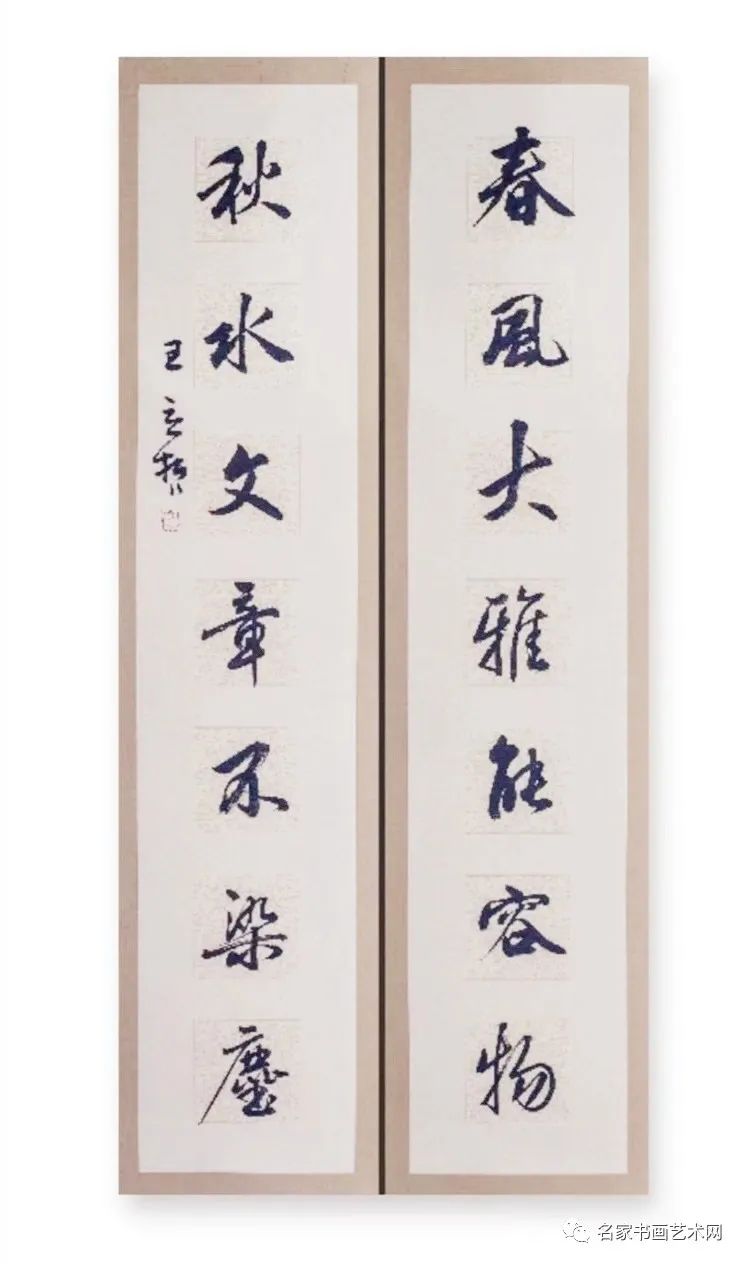 春風大雅能容物
秋水文章不染塵
王
名家书画艺术网